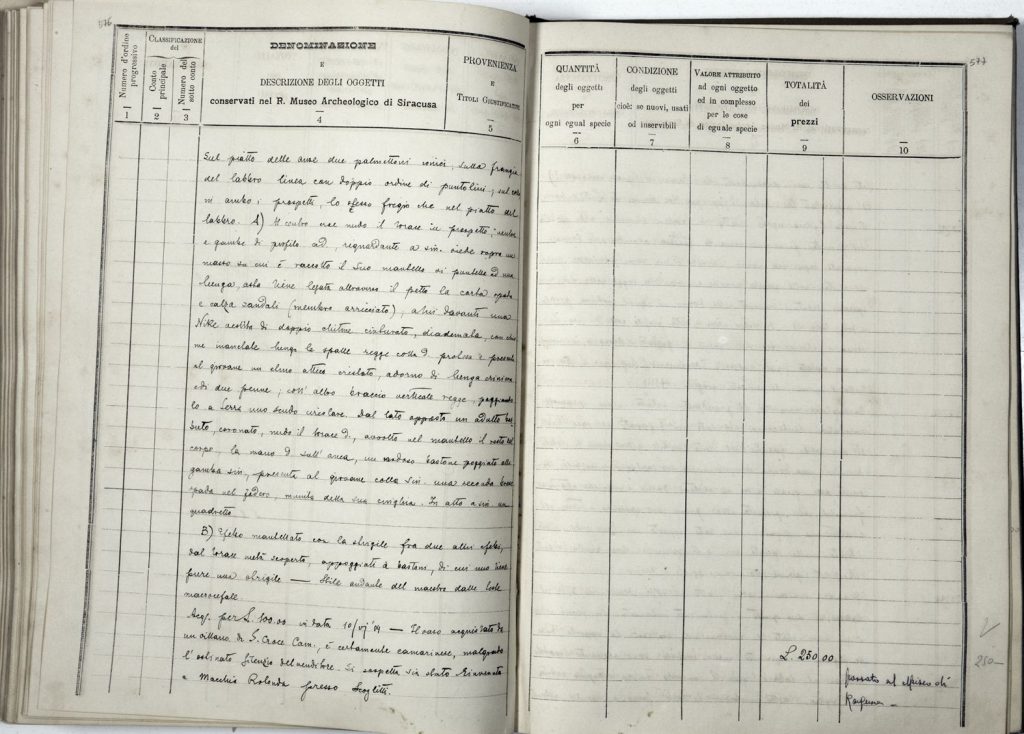 576
Numero d'ordine progressivo
CLASSIFICAZIONE
del
Conto principale
Numero del sotto conto
DENOMINAZIONE
E
DESCRIZIONE DEGLI OGGETTI
conservati nel R. Museo Archeologico di Siracusa
PROVENIENZA
E
TITOLI GIUSTIFICATIVI
1
2
3
4
5
Sul piatto delle anse due palmettoni ionici, sulla frangia
del labbro linea con doppio ordine di puntolini, sul collo
in ambo i prospetti, lo stesso fregio che nel piatto del
labbro. A) Al centro eroe nudo il torace in prospetto,
e gambe di profilo ad., reguardante a sin. siede sopra un
masso su cui è raccolto il suo mantello si puntella ad una
lunga asta tiene legata attraverso il petto la corta spada
e calza sandali (membro arricciato), a lui davanti una
Nike vestita di doppio chitone cinturato, diademata, con
me mantate lungo le spalle regge colla d. protesa e presenta
al giovane un elmo attico crestato, adorno di lunga criniera
e di due penne; coll' altro braccio verticale regge, poggiando
lo a terra uno scudo circolare. Dal lato opposto un adulto bar
buto, coronato, nudo il torace d., avvolto nel mantello il resto del
corpo, la mano d sull' anca, un nodoso bastone poggiato alla
gamba sin., presenta al giovane colla sin. una seconda breve
spada nel fodero munita della sua cinghia. In alto a sin. un
quadretto
B) Efebo mantellato con la strigile fra due altri efebi,
dal torace metà scoperto, appoggiati a bastoni, di cui uno tiene
pure una strigile — Stile andante del maestro dalle teste
macrocefale.
Acq. per L. 100.00 in data 10/VI '09 — Il vaso acquistato da
un villano di S. Croce Cam., è certamente camarinese, malgrado
l' ostinato silenzio del venditore. Si sospetta sia stato rinvenuto
a Macchia Rotonda presso Scoglitti.
577
QUANTITÀ
degli oggetti
per
ogni egual specie
CONDIZIONE
degli oggetti
cioè: se nuovi, usati
od inservibili
VALORE ATTRIBUITO
ad ogni oggetto
ed in complesso
per le cose
di eguale specie
TOTALITÀ
dei
prezzi
OSSERVAZIONI
6
7
8
9
10
L. 250,00
250—
passato al Museo di
Ragusa —